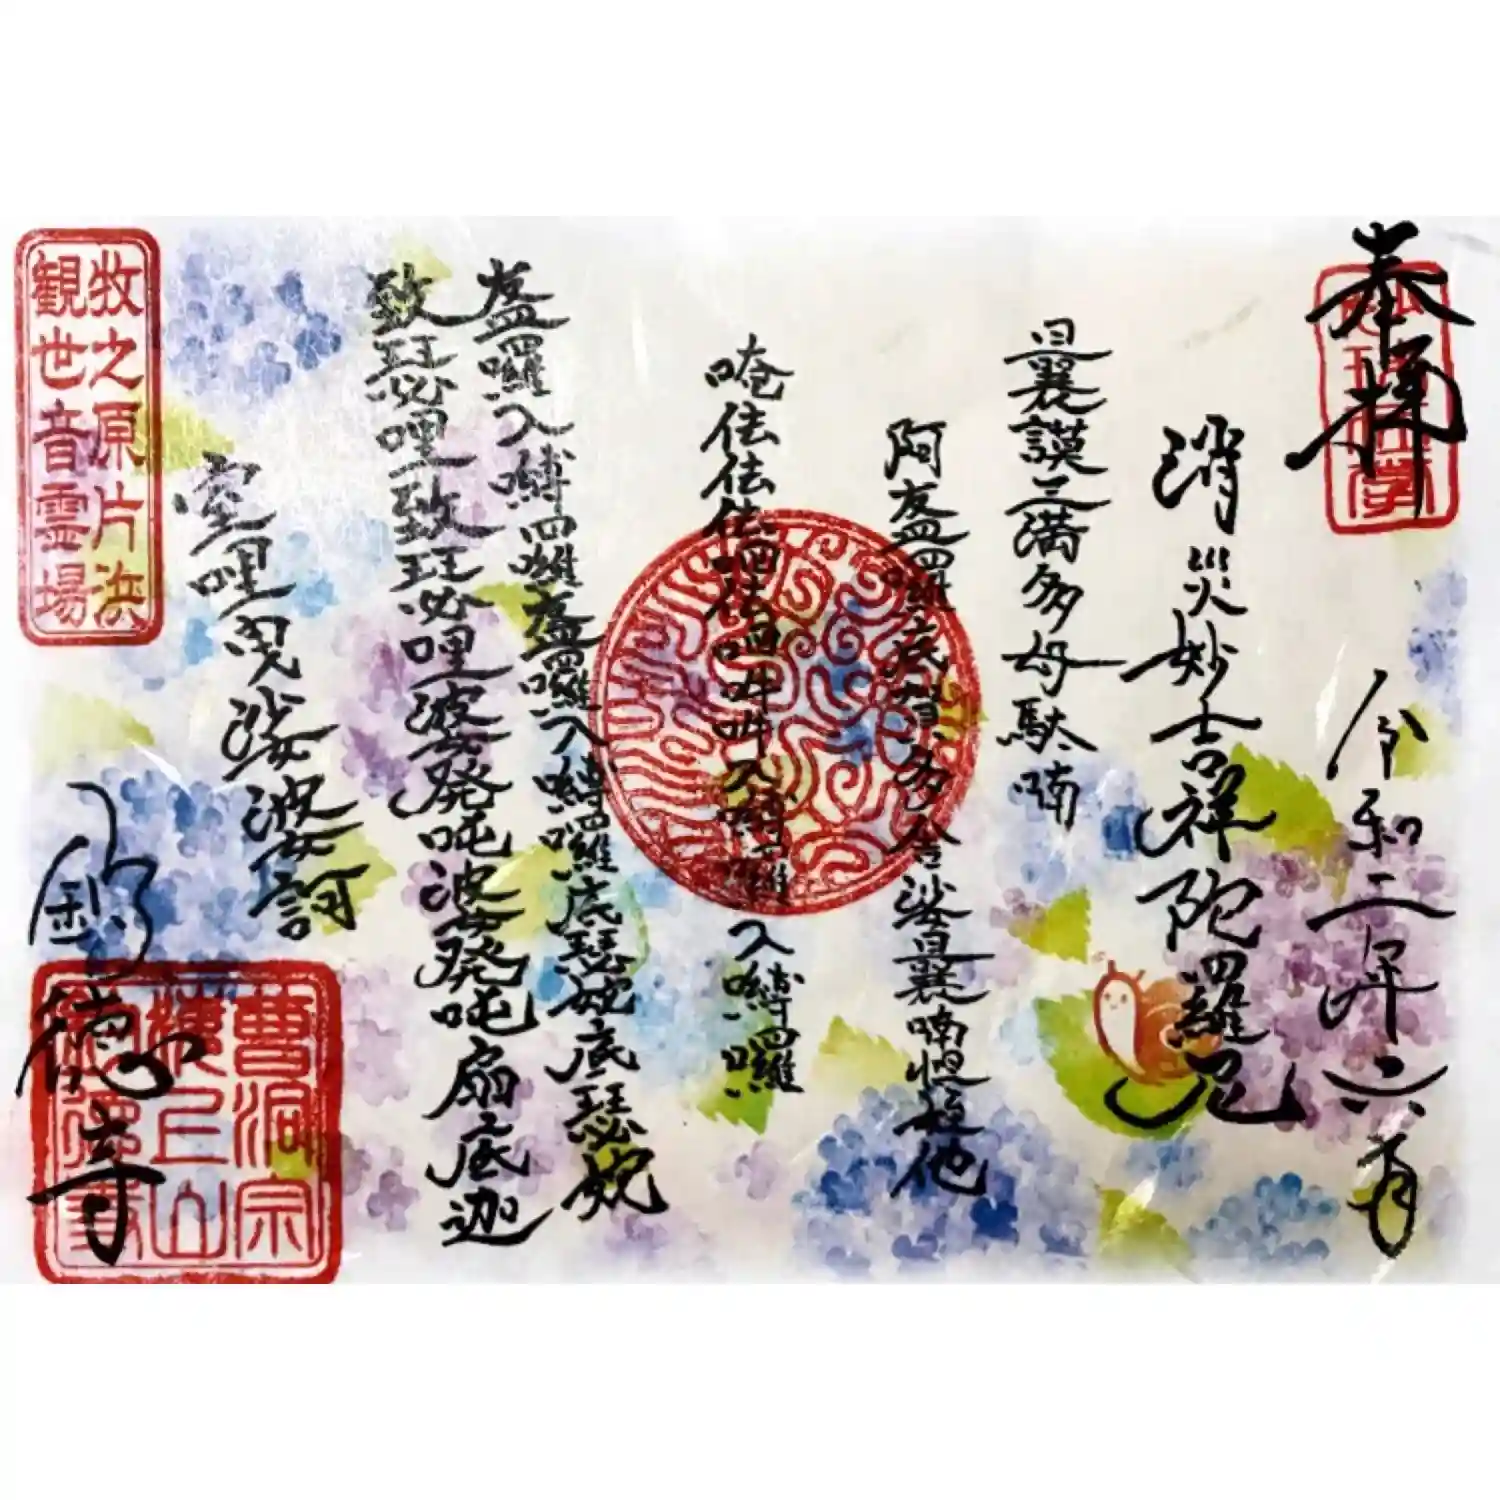 奉拝
令和二年六月
消災妙吉祥陀羅尼
曩謨三満多母駄喃
阿盋囉底賀多舎娑曩喃怛姪他
唵佉佉佉呬佉呬吽吽入嚩囉入嚩囉
盋囉入嚩囉盋囉入嚩囉底瑟妮底瑟妮
致瑟哩致瑟哩娑發吒娑發吒扇底迦
室哩曳娑婆訶
釣徳寺
牧之原片浜
観世音霊場
曹洞宗